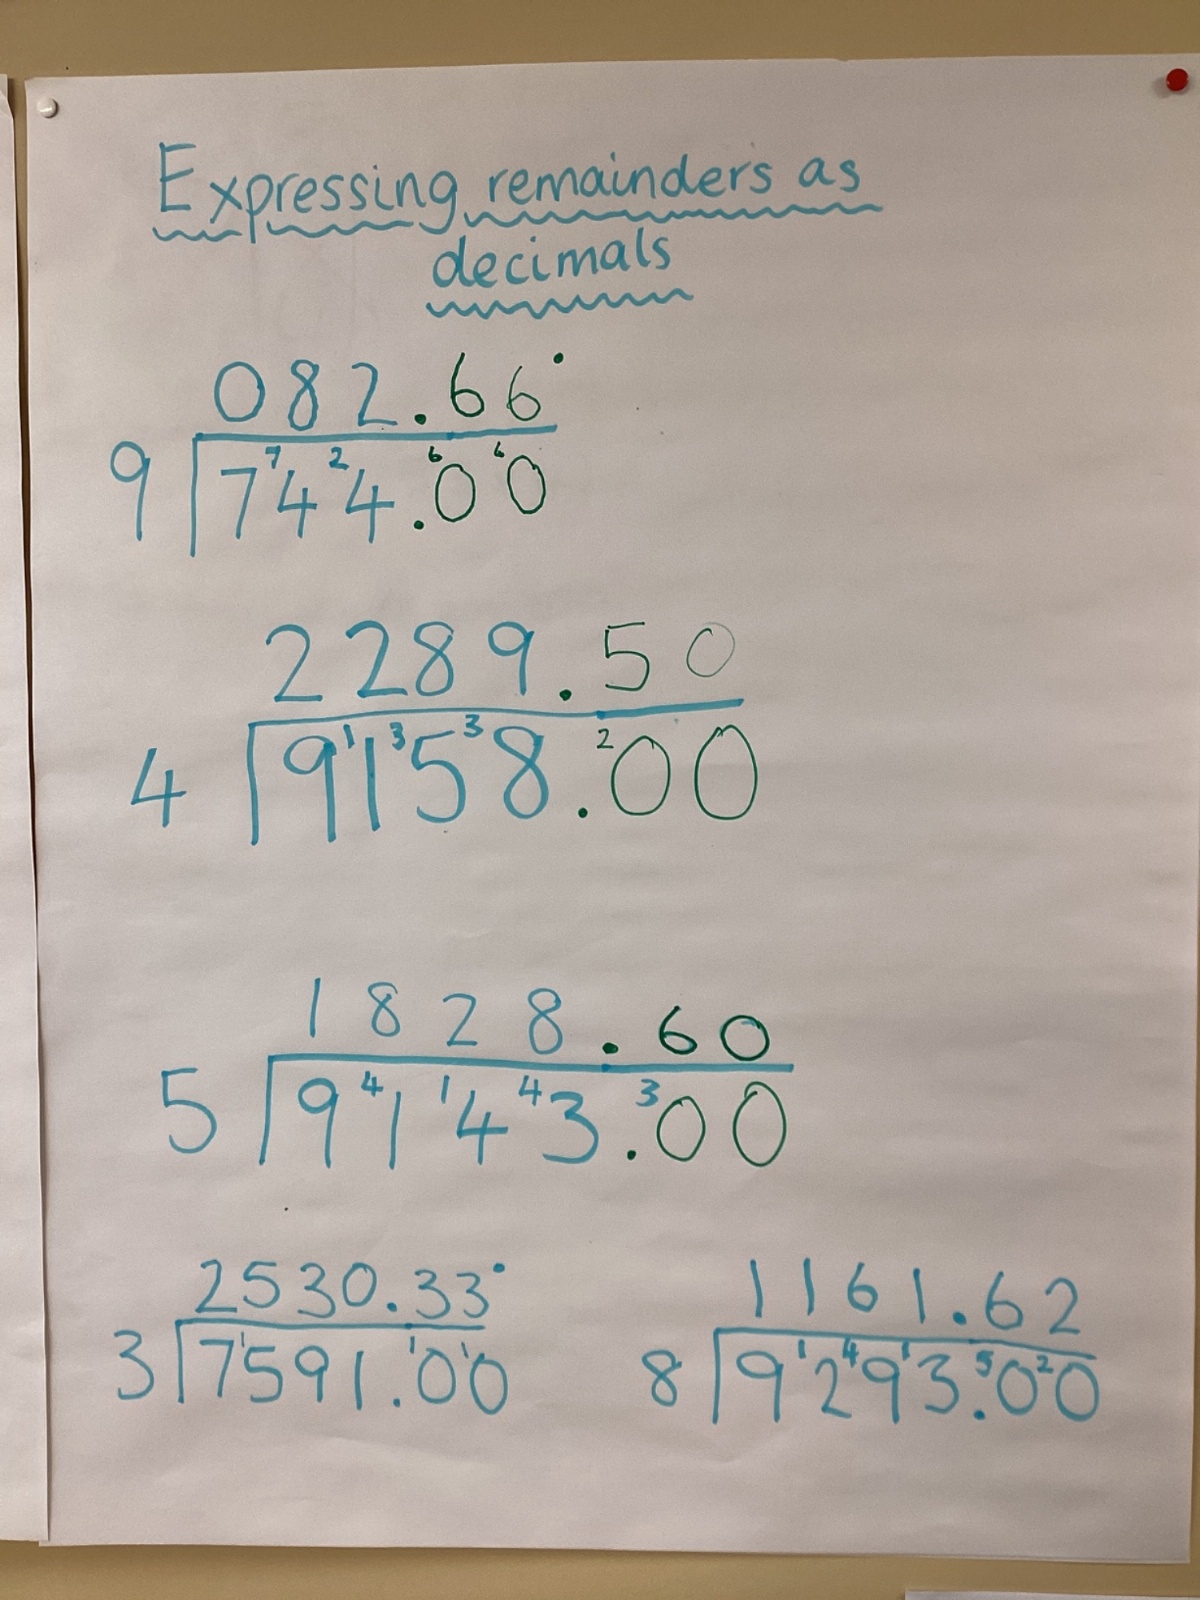 Expressing remainders as
decimals
082.66˙
9 7⁷4²4.⁶0⁶0
2289.50
4 9¹1³5³8.²00
1828.60
5 9⁴1¹4⁴3.³00
2530.33˙
3 7¹591.¹0¹0
1161.62
8 9¹2⁴9¹3.⁵0²0